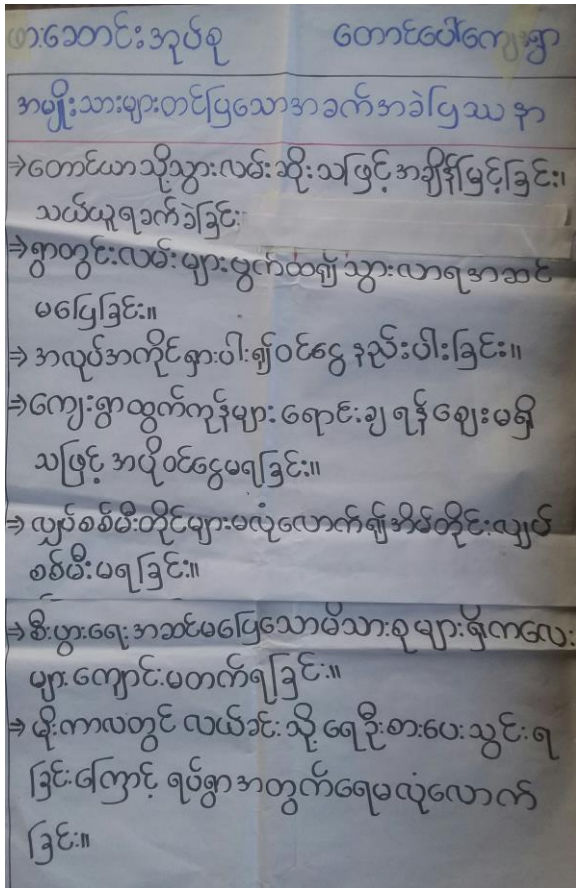 ဖားဆောင်းအုပ်စု တောင်ပေါ်ကျေးရွာ
အမျိုးသားများတင်ပြသောအခက်အခဲပြဿနာ
⇒တောင်ယာသို့သွားလမ်းဆိုးသဖြင့်အချိန်မြင့်ခြင်း၊
သယ်ယူရခက်ခဲခြင်း
⇒ရွာတွင်းလမ်းများပွက်ထ၍သွားလာရအဆင်
မပြေခြင်း။
⇒အလုပ်အကိုင်ရှားပါး၍ဝင်ငွေနည်းပါးခြင်း။
⇒ကျေးရွာထွက်ကုန်များရောင်းချရန်ဈေးမရှိ
သဖြင့်အပိုဝင်ငွေမရခြင်း။
⇒လျှပ်စစ်မီးတိုင်များမလုံလောက်၍အိမ်တိုင်းလျှပ်
စစ်မီးမရခြင်း။
⇒စီးပွားရေးအဆင်မပြေသောမိသားစုများရှိကလေး
များကျောင်းမတက်ရခြင်း။
⇒မိုးကာလတွင်လယ်ခင်းသို့ရေဦးစားပေးသွင်းရ
ခြင်းကြောင့်ရပ်ရွာအတွက်ရေမလုံလောက်
ခြင်း။